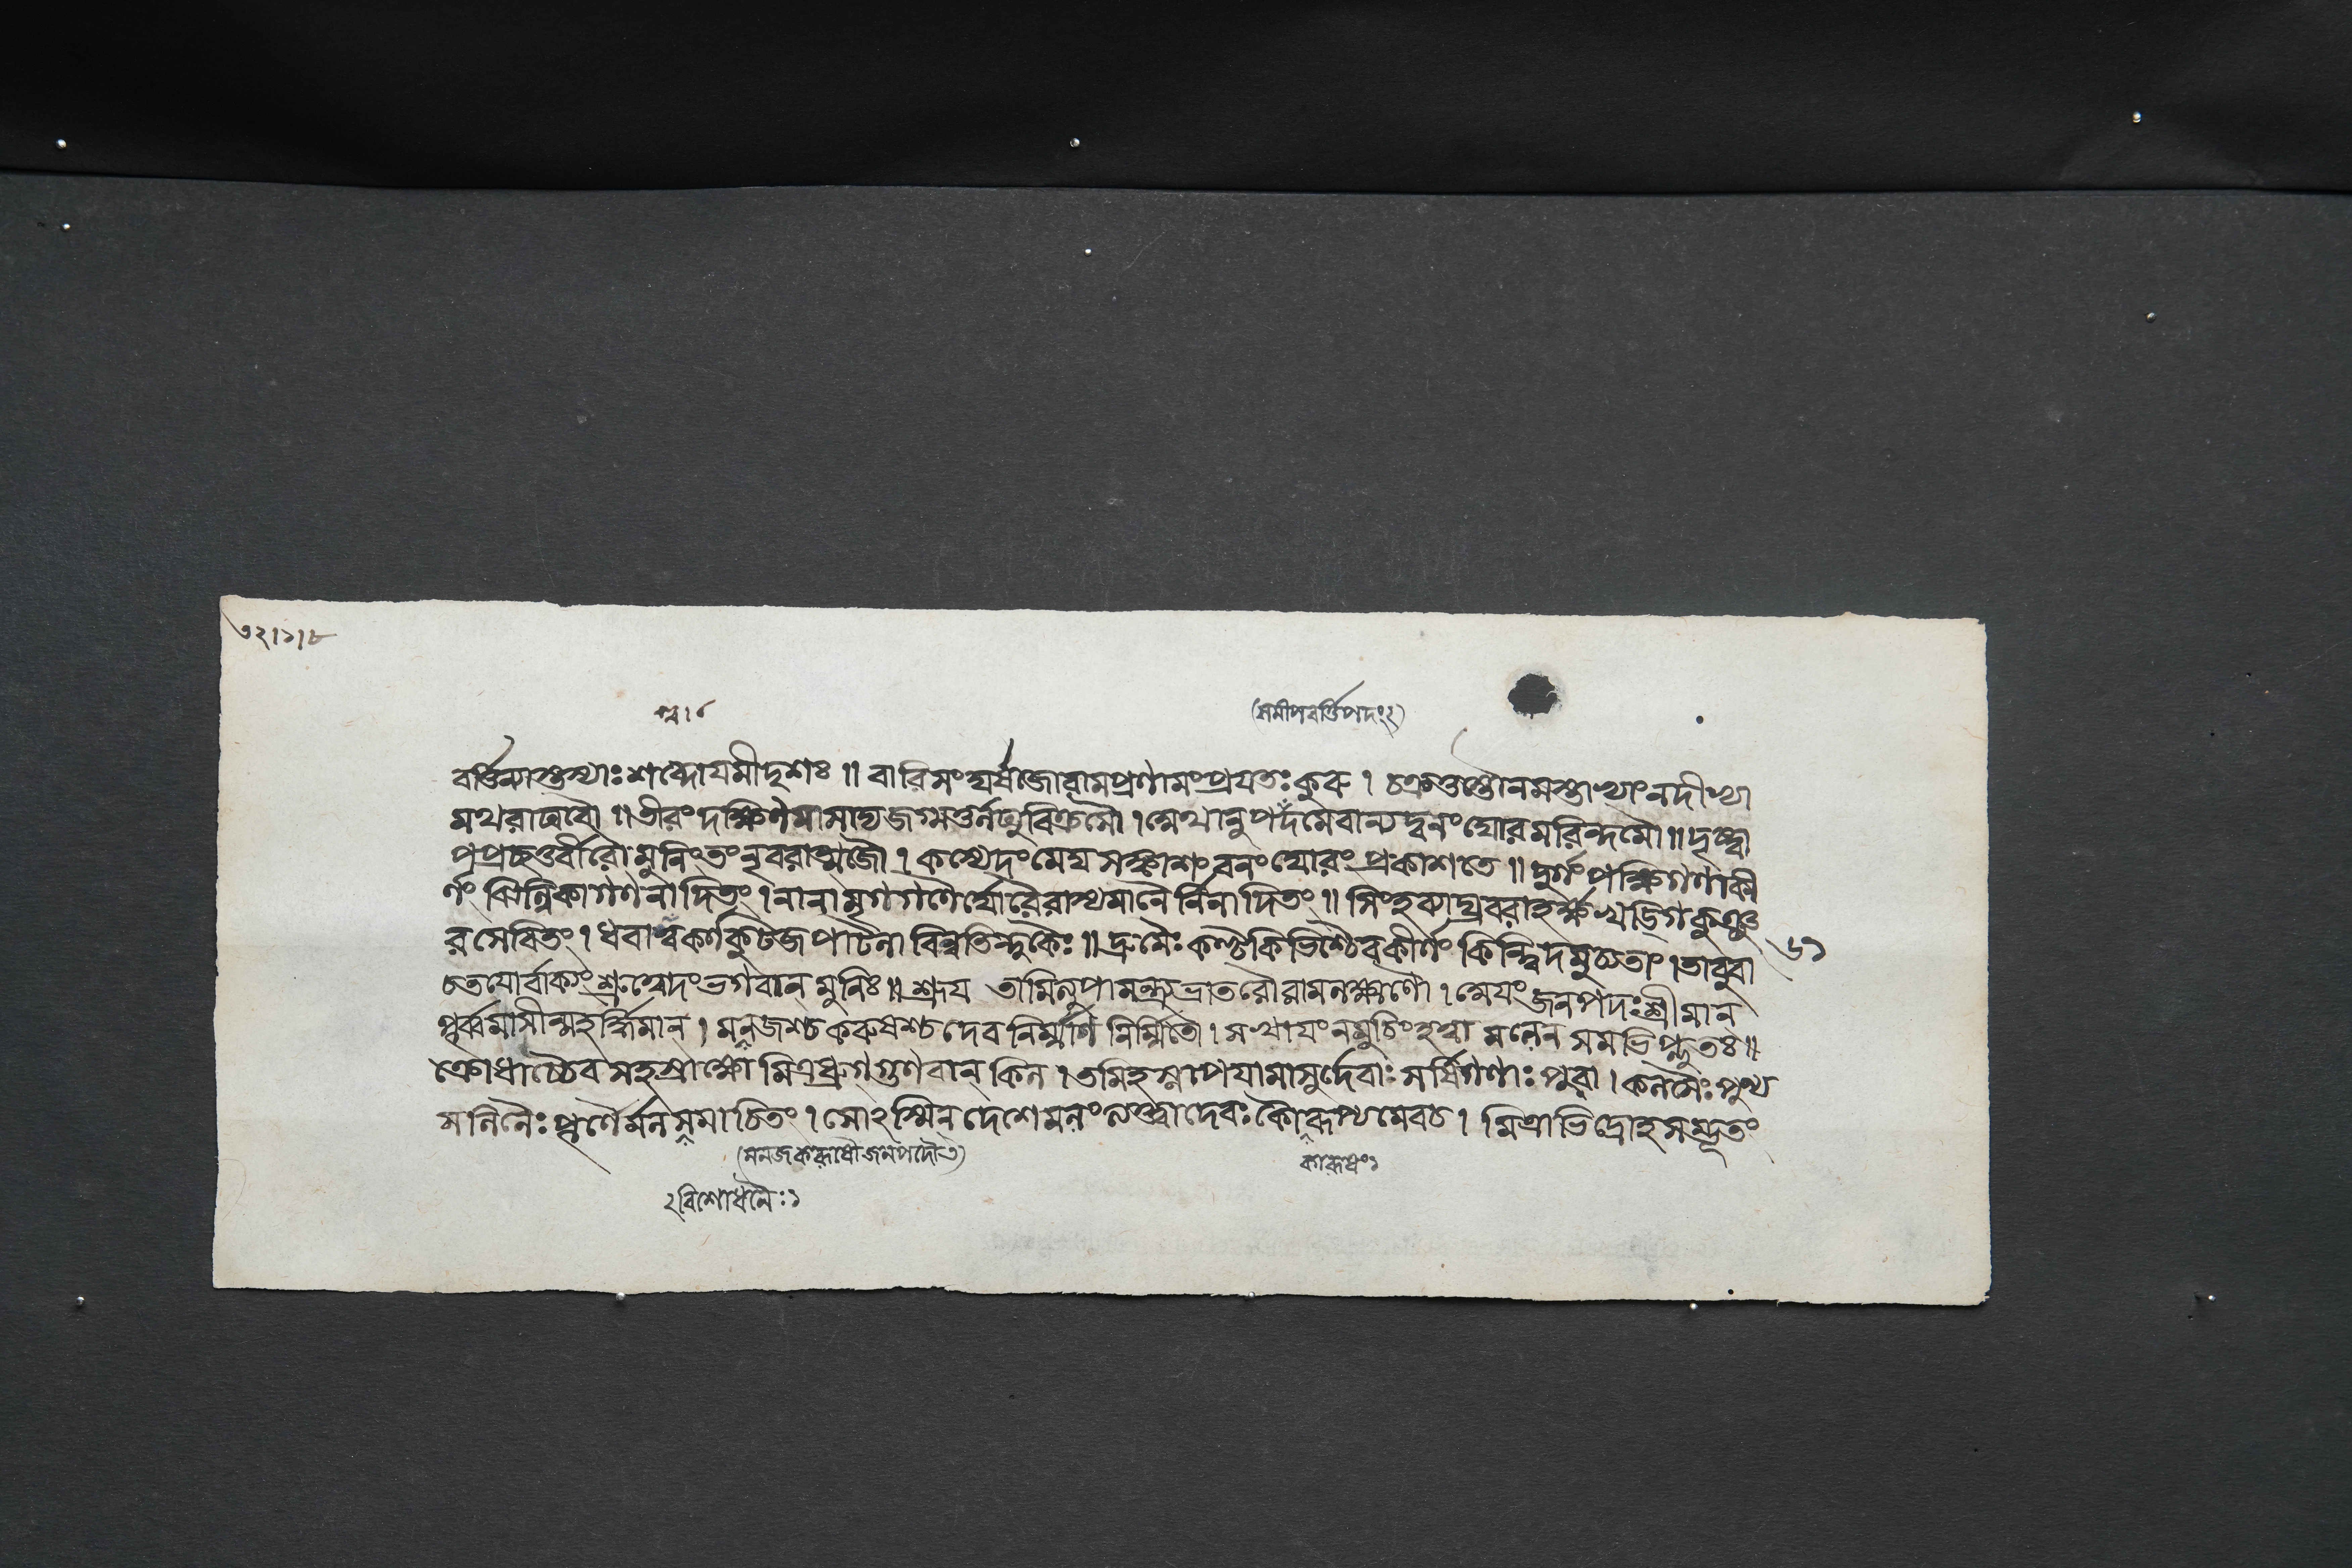 ৩২।১।৮
(সমীপবর্ত্তিপদং২)
বর্ত্তিন্যাস্তুস্যাঃশব্দোযমীদৃশঃ ॥ বারিসংঘর্ষজোরামপ্রণামংপ্রযতঃকুরু । চক্রতুস্তৌনমস্তাভ্যাংনদীভ্যা
মথরাঘবৌ ॥ তীরংদক্ষিণমাসাদ্যজগ্মতুর্ল্লঘুবিক্রমৌ । সোথানুপদমেবান্যদ্বনংঘোরমরিন্দমৌ ॥ দৃষ্ট্বা
পপ্রচ্ছতুর্বীরৌমুনিংতংনৃবরাত্মজৌ । কস্যেদংমেঘসঙ্কাশংবনংঘোরংপ্রকাশতে ॥ দুর্গংপক্ষিগণাকী
র্ণং ঝিল্লিকাগণনাদিতং । নানামৃগগণৈর্ঘোরৈরাস্থমানৈর্নিনাদিতং ॥ সিংহব্যাঘ্রবরাহর্ক্ষখড়্গিকুঞ্জ
রসেবিতং । ধবাশ্বকর্ণকুটজপাটলাবিল্বতিন্দুকৈঃ ॥ দ্রুমৈঃকণ্টকিভিশ্চৈবকীর্ণং কিন্ন্বিদমুচ্যতাং । তাবুবা
৬১
চতযোর্বাক্যংশ্রুত্বেদংভগবান মুনিঃ ॥ শ্রূয তামিত্যুপামন্ত্র্যভ্রাতরৌরামলক্ষ্মণৌ । সোযংজনপদঃশ্রীমান
পূর্ব্বমাসীন্মহর্দ্ধিমান্ । মলজশ্চকরুষশ্চদেবনির্ম্মাণনির্ম্মিতৌ । সখাযংনমুচিংহত্বা মলেন সমভিপ্লুতঃ ॥
ক্রোধাচ্চৈব সহস্রাক্ষো মিত্রধ্রুগ্গুণবান্ কিল । তমিহস্নাপযামাসুর্দেবাঃ সর্ষিগণাঃ পুরা । কলসৈঃপুণ্য
সলিলৈঃ পূর্ণৈর্মলসমাচিতং । সোঽস্মিন্দেশেমলংলব্ধ্বাদেবঃকারূষ্যমেবচ । মিত্রাভিদ্রোহসম্ভূতং
(মলজকরূষৌজনপদৌ৩)
কারূষং১
২বিশোধনৈঃ১